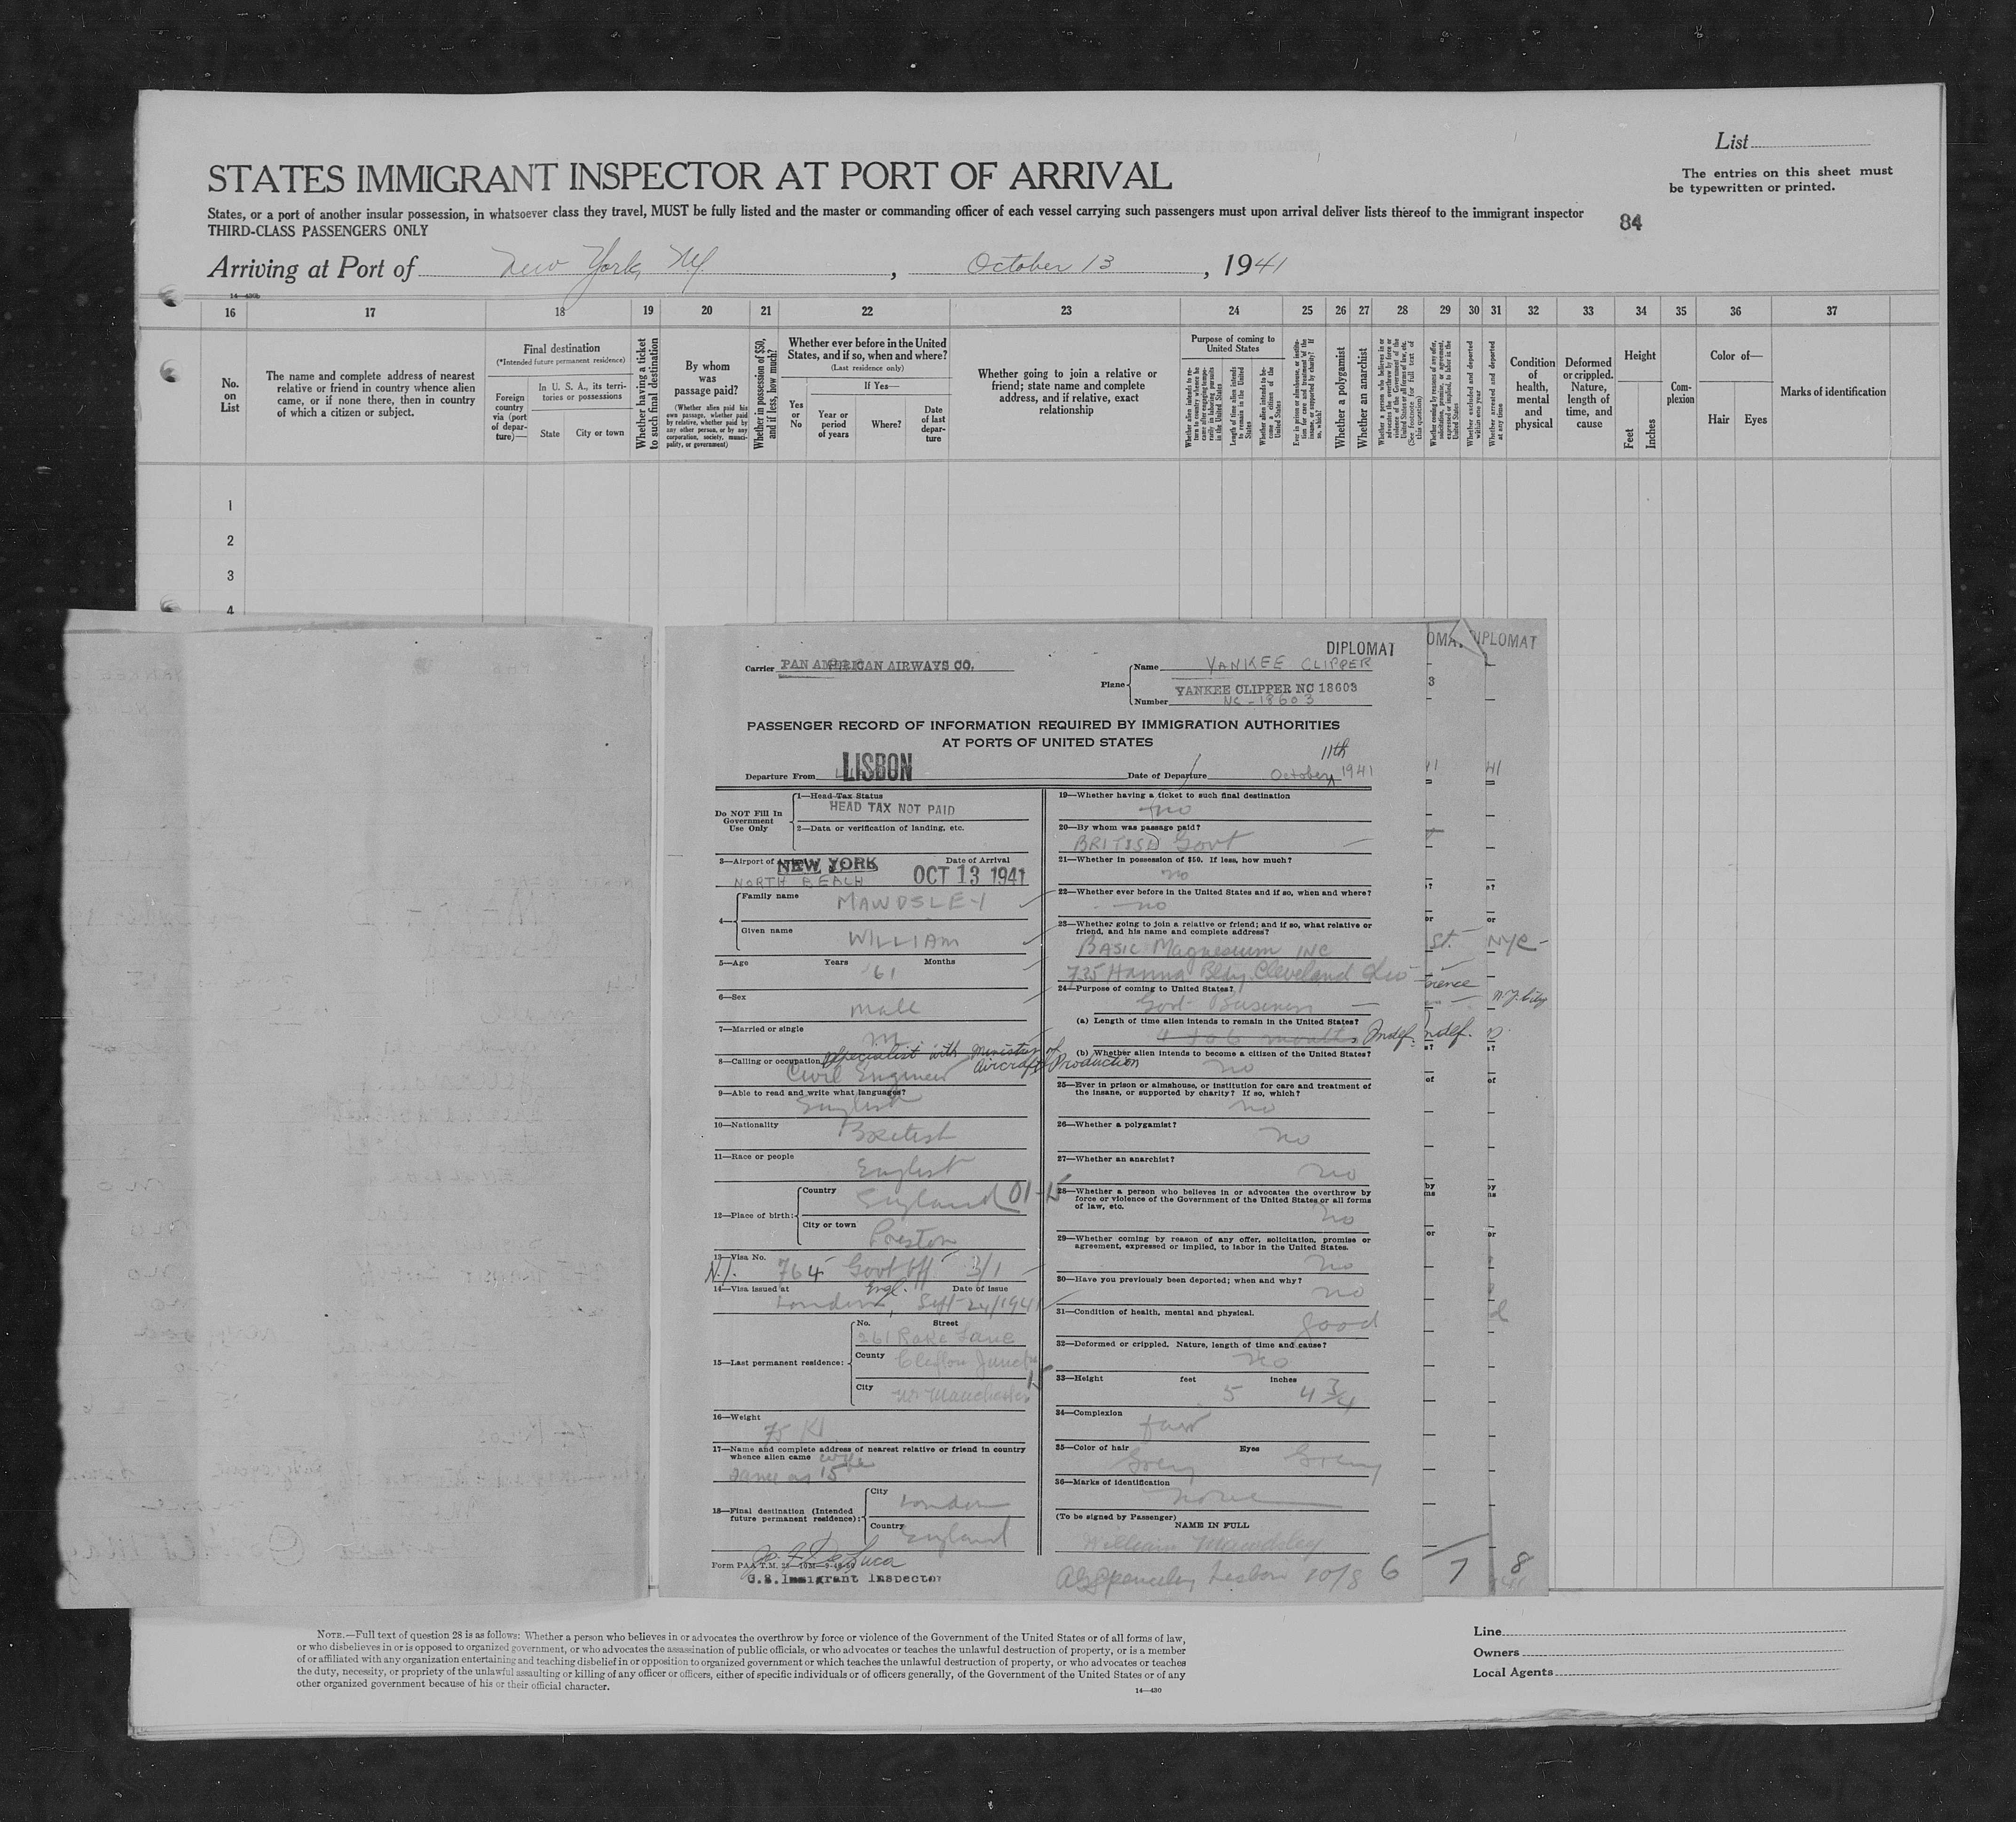 List
The entries on this sheet must
be typewritten or printed.
STATES IMMIGRANT INSPECTOR AT PORT OF ARRIVAL
States, or a port of another insular possession, in whatsoever class they travel, MUST be fully listed and the master or commanding officer of each vessel carrying such passengers must upon arrival deliver lists thereof to the immigrant inspector
THIRD-CLASS PASSENGERS ONLY
84
Arriving at Port of New York, NY. , October 13 , 1941
14—430b
16 17 18 19 20 21 22 23 24 25 26 27 28 29 30 31 32 33 34 35 36 37
No. on List
The name and complete address of nearest relative or friend in country whence alien came, or if none there, then in country of which a citizen or subject.
Final destination
(*Intended future permanent residence)
Foreign country via (port of departure)—
In U. S. A., its territories or possessions
State
City or town
Whether having a ticket to such final destination
By whom was passage paid?
(Whether alien paid his own passage, whether paid by relative, whether paid by any other person, or by any corporation, society, municipality, or government)
Whether in possession of $50, and if less, how much?
Whether ever before in the United States, and if so, when and where?
(Last residence only)
If Yes—
Yes or No
Year or period of years
Where?
Date of last departure
Whether going to join a relative or friend; state name and complete address, and if relative, exact relationship
Purpose of coming to United States
Length of time alien intends to remain in the United States
Whether alien intends to become a citizen of the United States
Whether a polygamist
Whether an anarchist
Whether excluded and deported within one year
Whether arrested and deported at any time
Condition of health, mental and physical
Deformed or crippled. Nature, length of time, and cause
Height
Feet
Inches
Complexion
Color of—
Hair
Eyes
Marks of identification
1
2
3
4
DIPLOMAT
DIPLOMAT
Carrier PAN AMERICAN AIRWAYS CO.
Plane
Name YANKEE CLIPPER
YANKEE CLIPPER NC 18603
Number NC-18603
PASSENGER RECORD OF INFORMATION REQUIRED BY IMMIGRATION AUTHORITIES
AT PORTS OF UNITED STATES
Departure From LISBON
Date of Departure October 11th 1941
Do NOT Fill In
Government
Use Only
1—Head Tax Status
HEAD TAX NOT PAID
2—Data or verification of landing, etc.
3—Airport of NEW YORK
NORTH BEACH
Date of Arrival
OCT 13 1941
4—
Family name MAWDSLEY
Given name WILLIAM
5—Age Years 61 Months
6—Sex male
7—Married or single m
8—Calling or occupation Specialist with Ministry of Aircraft Production
Civil Engineer
9—Able to read and write what languages?
English
10—Nationality British
11—Race or people English
12—Place of birth:
Country England 01-15
City or town Preston
13—Visa No. N.I. 764 Govt Off 3/1
14—Visa issued at London, Engl. Date of issue Sept 24/1941
15—Last permanent residence:
No. Street
261 Rake Lane
County Clifton Junct
City Nr Manchester
16—Weight 75 K
17—Name and complete address of nearest relative or friend in country
whence alien came wife
same as 15
18—Final destination (Intended
future permanent residence):
City London
Country England
Form PAA T.M.
U.S. Immigrant Inspector
19—Whether having a ticket to such final destination
no
20—By whom was passage paid?
BRITISH Govt
21—Whether in possession of $50. If less, how much?
no
22—Whether ever before in the United States and if so, when and where?
no
23—Whether going to join a relative or friend; and if so, what relative or
friend, and his name and complete address?
BASIC Magnesium INC
725 Hanna Bldg. Cleveland Ohio
24—Purpose of coming to United States?
Govt Business
(a) Length of time alien intends to remain in the United States?
4 to 6 months. Indef.
(b) Whether alien intends to become a citizen of the United States?
no
25—Ever in prison or almshouse, or institution for care and treatment of
the insane, or supported by charity? If so, which?
no
26—Whether a polygamist?
no
27—Whether an anarchist?
no
28—Whether a person who believes in or advocates the overthrow by
force or violence of the Government of the United States or all forms
of law, etc.
no
29—Whether coming by reason of any offer, solicitation, promise or
agreement, expressed or implied, to labor in the United States.
no
30—Have you previously been deported; when and why?
no
31—Condition of health, mental and physical.
good
32—Deformed or crippled. Nature, length of time and cause?
no
33—Height feet 5 inches 4 3/4
34—Complexion fair
35—Color of hair Grey Eyes Grey
36—Marks of identification
none
(To be signed by Passenger)
NAME IN FULL
William Mawdsley
Lisbon 10/8 6
7
8
St. NYC
N.Y. City
ndef.
NOTE.—Full text of question 28 is as follows: Whether a person who believes in or advocates the overthrow by force or violence of the Government of the United States or of all forms of law,
or who disbelieves in or is opposed to organized government, or who advocates the assassination of public officials, or who advocates or teaches the unlawful destruction of property, or is a member
of or affiliated with any organization entertaining and teaching disbelief in or opposition to organized government or which teaches the unlawful destruction of property, or who advocates or teaches
the duty, necessity, or propriety of the unlawful assaulting or killing of any officer or officers, either of specific individuals or of officers generally, of the Government of the United States or of any
other organized government because of his or their official character.
14—430
Line
Owners
Local Agents